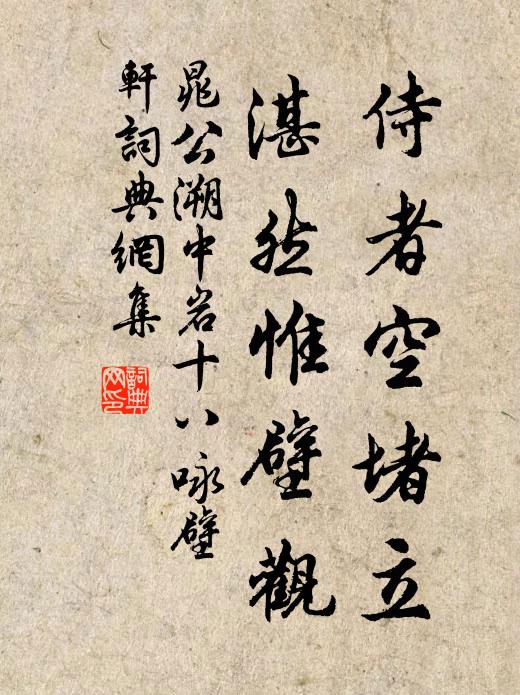 侍者空堵立
湛然惟壁觀
晁公溯中岩十八咏壁
軒詞典網集
詞典網印